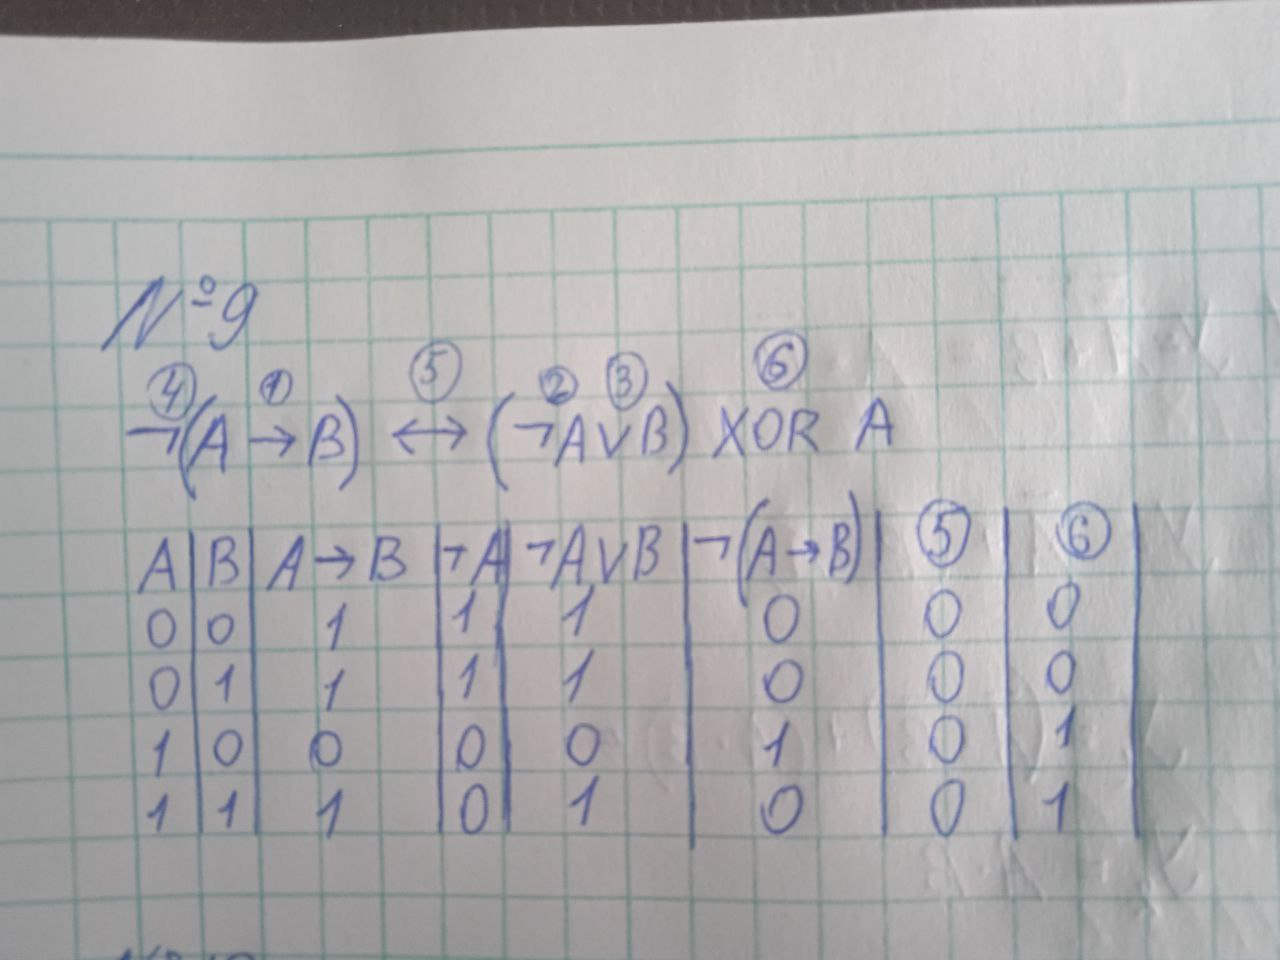 №9
④ ① ⑤ ② ③ ⑥
¬(A → B) ↔ (¬A∨B) XOR A
A | B | A → B | ¬A | ¬A∨B | ¬(A → B) | ⑤ | ⑥ |
0 | 0 | 1 | 1 | 1 | 0 | 0 | 0 |
0 | 1 | 1 | 1 | 1 | 0 | 0 | 0 |
1 | 0 | 0 | 0 | 0 | 1 | 0 | 1 |
1 | 1 | 1 | 0 | 1 | 0 | 0 | 1 |